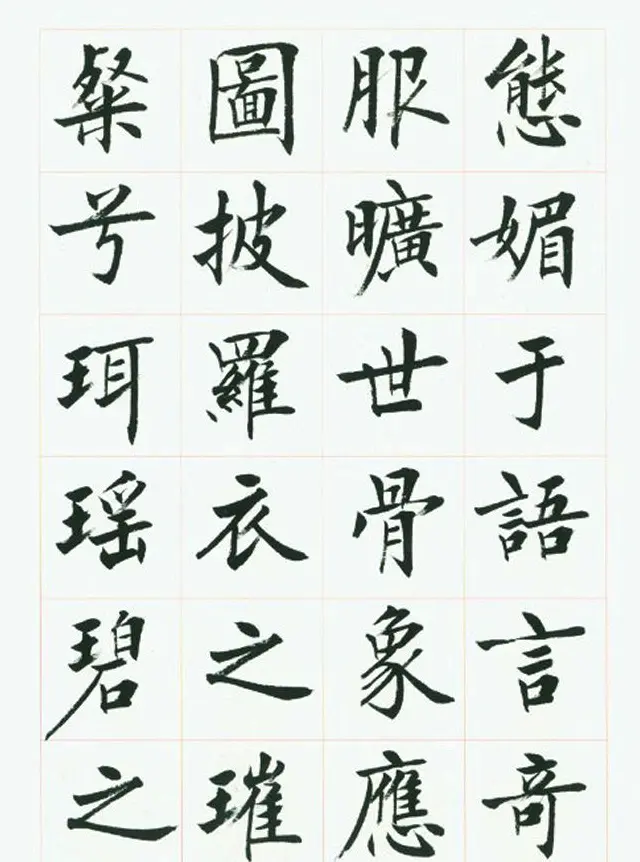 態媚于語言奇
服曠世骨象應
圖披羅衣之璀
粲兮珥瑶碧之